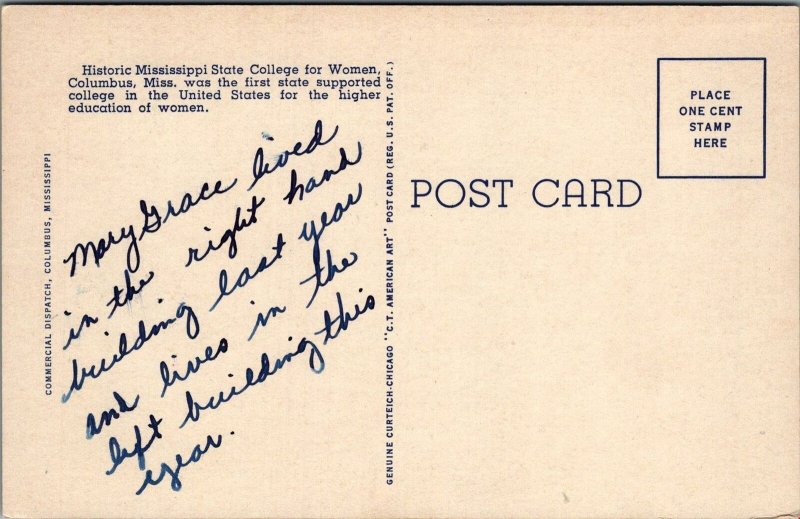 Historic Mississippi State College for Women,
Columbus, Miss. was the first state supported
college in the United States for the higher
education of women.
Mary Grace lived
in the right hand
building last year
and lives in the
left building this
year.
COMMERCIAL DISPATCH, COLUMBUS, MISSISSIPPI
GENUINE CURTEICH-CHICAGO "C.T. AMERICAN ART" POST CARD (REG. U.S. PAT. OFF.)
POST CARD
PLACE
ONE CENT
STAMP
HERE